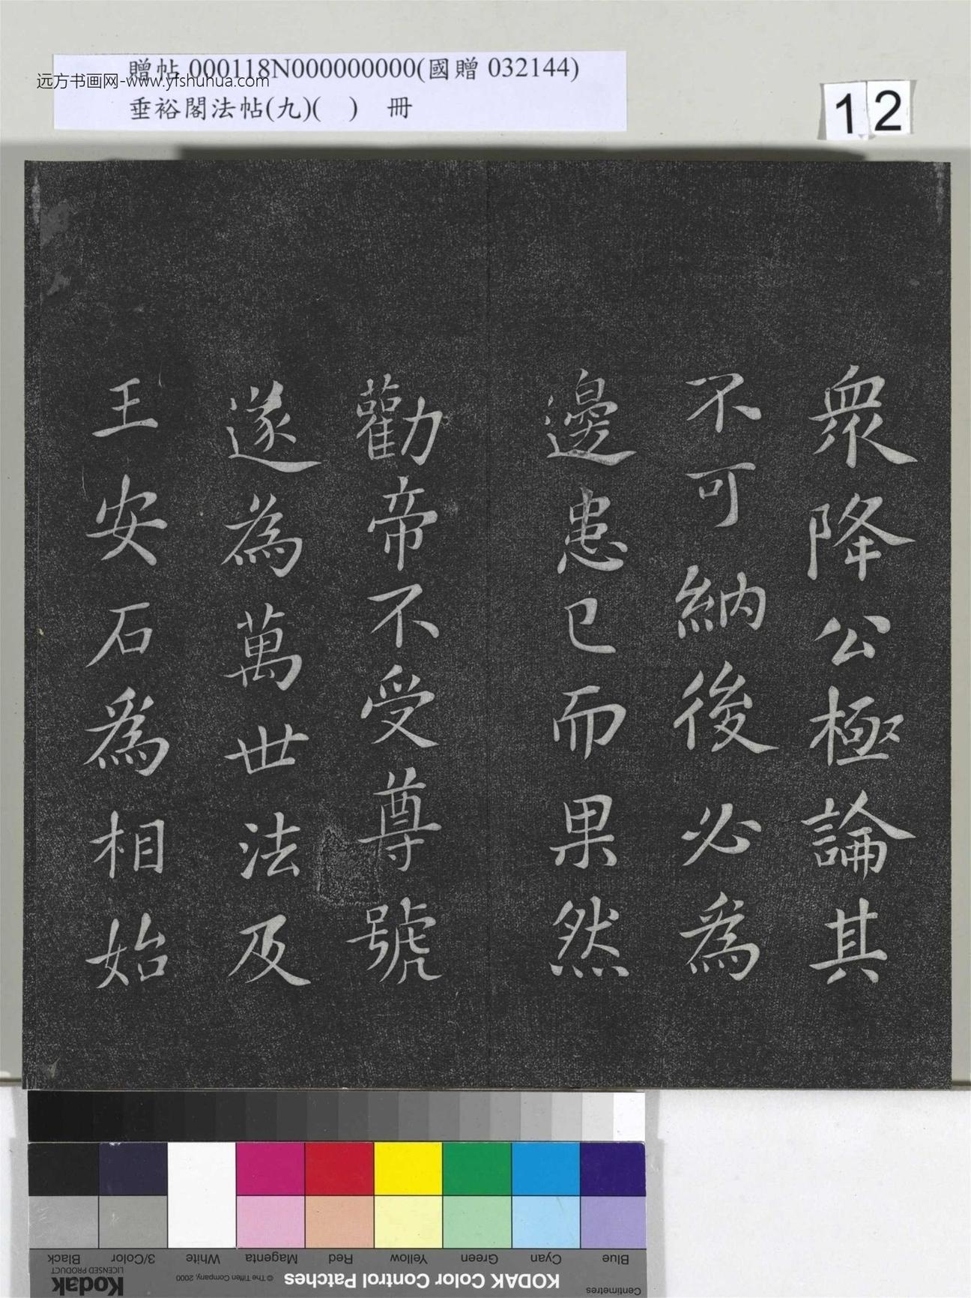 贈帖 000118N000000000(國贈 032144)
远方书画网-www.yfshuhua.com
垂裕閣法帖(九)(　)　冊
12
衆降公極論其
不可納後必為
邊患已而果然
勸帝不受尊號
遂為萬世法及
王安石爲相始
Black
3/Color
White
Magenta
Red
Yellow
Green
Cyan
Blue
Kodak
LICENSED PRODUCT
© The Tiffen Company, 2000
KODAK Color Control Patches
Centimetres